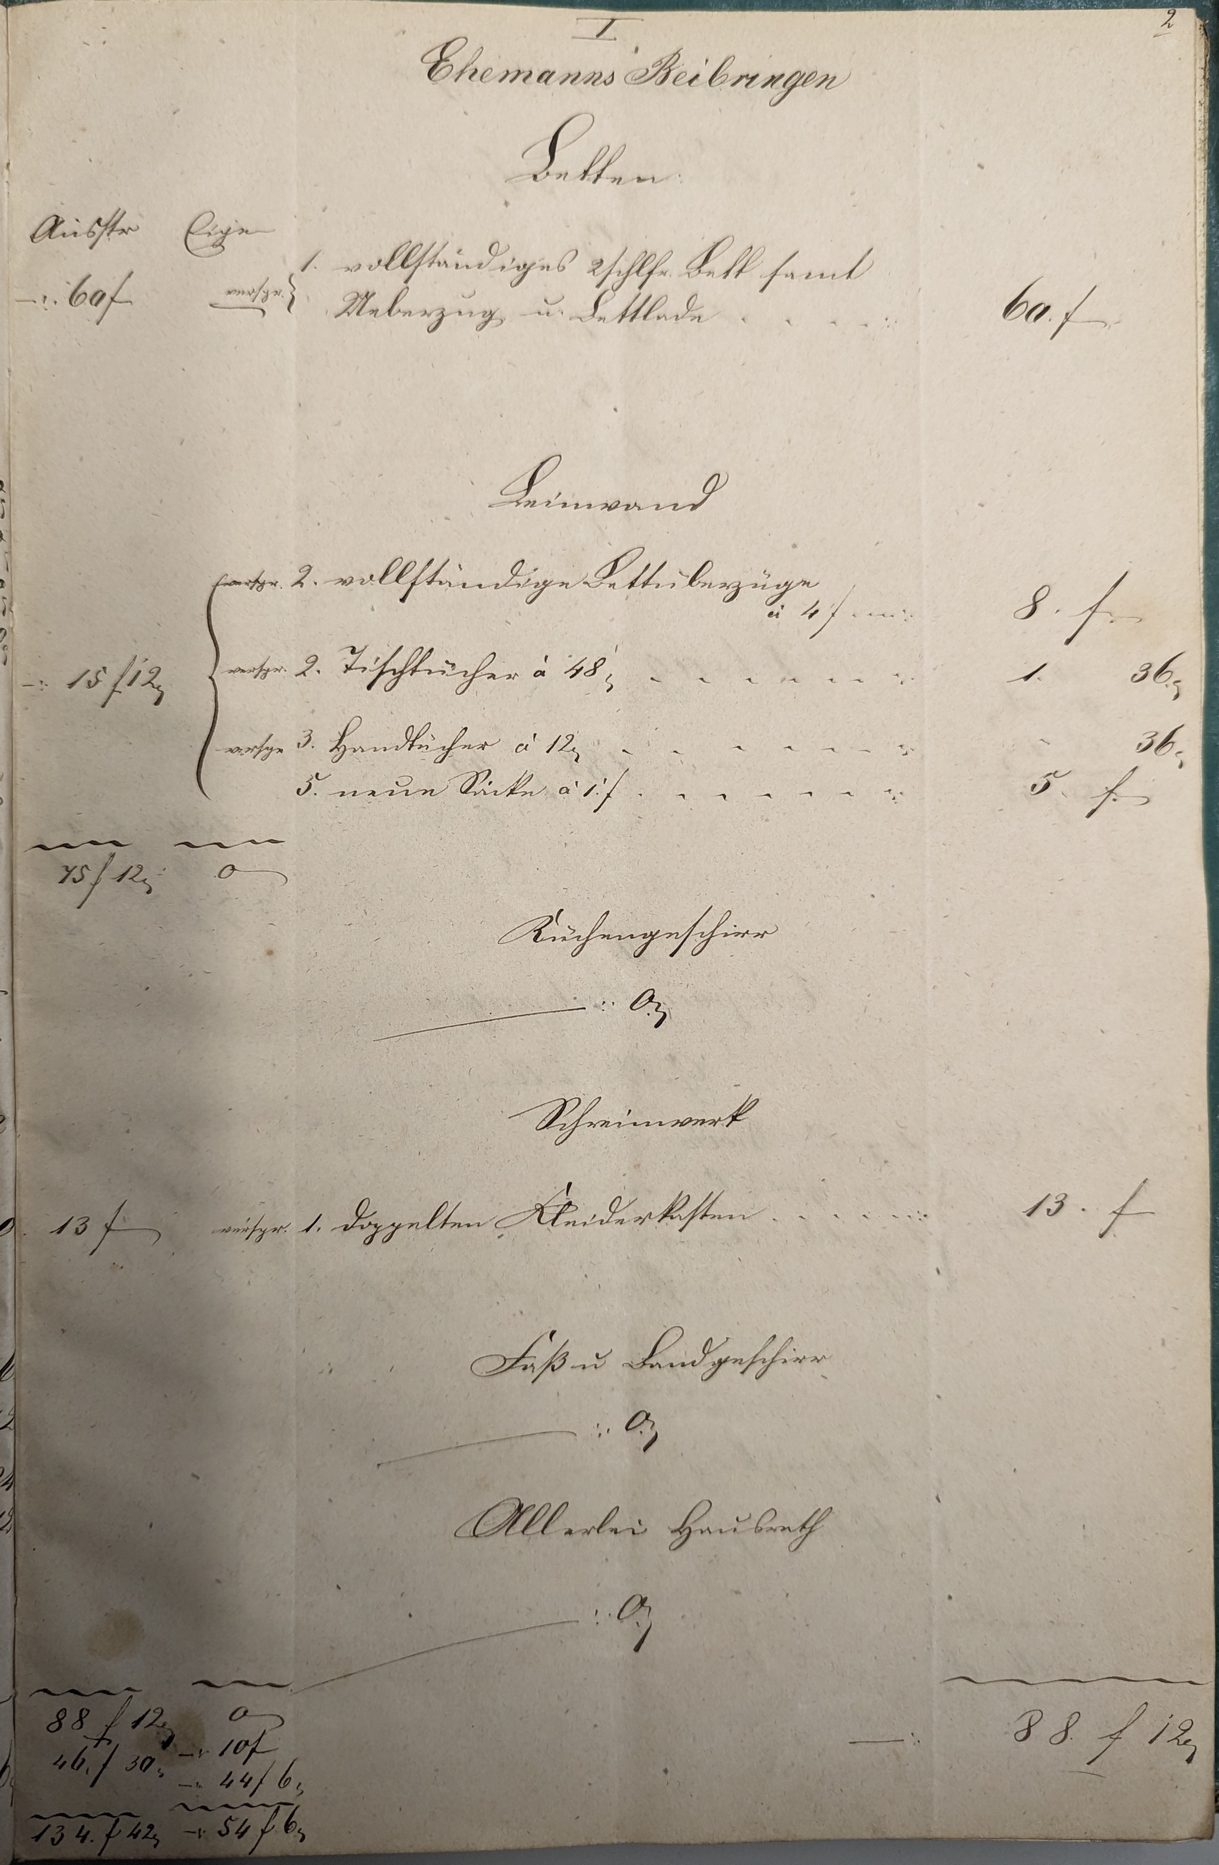 2
I
Ehemanns Beibringen
Betten.
Ausstr Eigen
1. vollständiges 2schlfr. Bett samt
-:. 60 f verspr. Ueberzug u. Bettlade . . . . -:. 60. f
Leinwand
verspr. 2. vollständige Bettüberzüge
à 4 f -:. 8. f.
-:. 15 f 12 verspr. 2. Tischtücher à 48 . . . . . . . -:. 1. 36.
verspr 3. Handtücher à 12 . . . . . . . -:. - 36.
5. neue Säcke à 1 f . . . . . . . -:. 5. f.
75 f 12 0
Küchengeschirr
-:. 0.
Schreinwerk
13 f verspr. 1. doppelten Kleiderkasten . . . . . . -:. 13. f
Faß u Bandgeschirr
-:. 0.
Allerlei Hausrath
-:. 0.
88 f 12 0
-:. 88. f 12
46. f 30. -:. 10 f
-:. 44 f 6.
134. f 42 -:. 54 f 6.